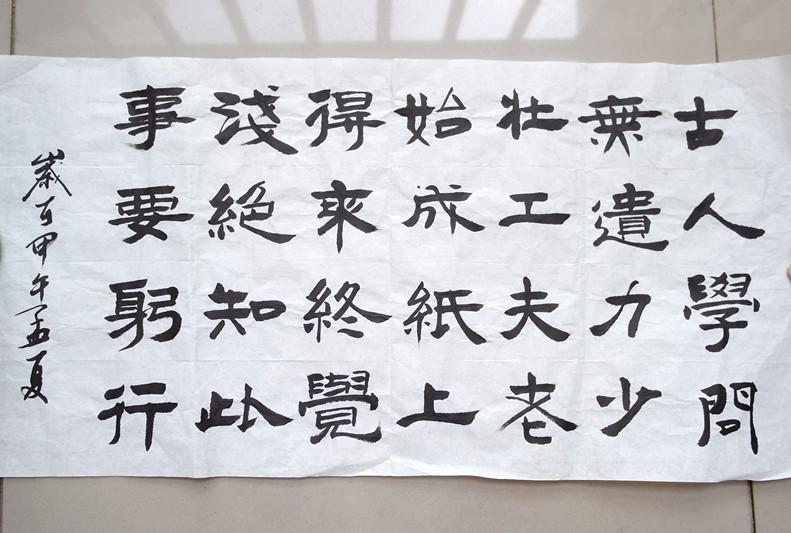 古人學問
無遺力少
壯工夫老
始成紙上
得來終覺
淺絕知此
事要躬行
歲在甲午孟夏